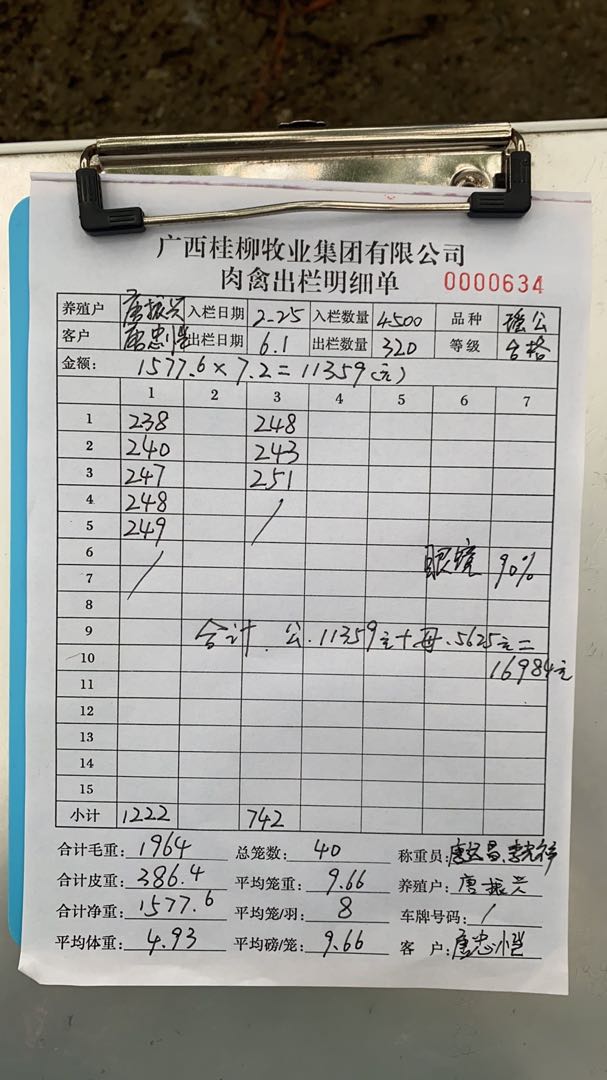 广西桂柳牧业集团有限公司
肉禽出栏明细单 0000634
养殖户 唐振兴 入栏日期 2.25 入栏数量 4500 品种 瑶公
客户 唐忠恺 出栏日期 6.1 出栏数量 320 等级 合格
金额: 1577.6×7.2=11359(元)
1 2 3 4 5 6 7
1 238 248
2 240 243
3 247 251
4 248 /
5 249
6 / 眼镜 90%
7
8
9 合计. 公.11359元+母.5625元=
10 16984元
11
12
13
14
15
小计 1222 742
合计毛重: 1964 总笼数: 40 称重员:
合计皮重: 386.4 平均笼重: 9.66 养殖户: 唐振兴
合计净重: 1577.6 平均笼/羽: 8 车牌号码: /
平均体重: 4.93 平均磅/笼: 9.66 客 户: 唐忠恺